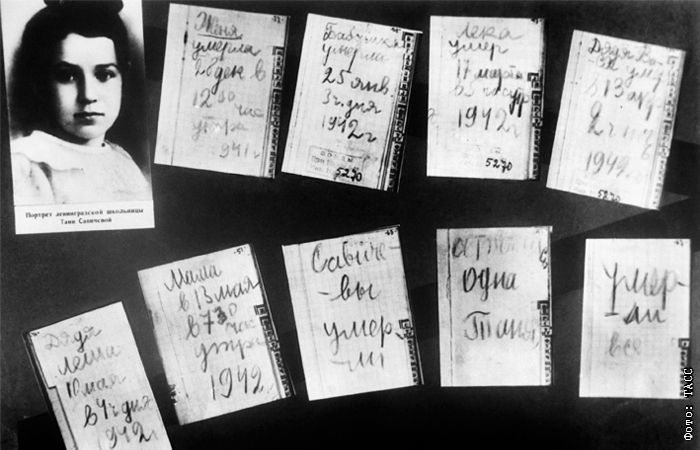 Портрет ленинградской школьницы
Тани Савичевой
Женя
умерла
28 дек в
12 30
час
утра
1941 г
Бабушка
умерла
25 янв.
3 ч дня
1942 г
5270
Лека
умер
17 марта
в 5 час
1942 г
5270
Дядя Ва-
ся ум
в 13 апр
2 ч
1942 г
5270
Дядя
Леша
10 мая
в 4 ч дня
1942 г
Мама
в 13 мая
в 7 30
час
утра
1942 г
Савиче-
-вы
умер-
-ли
одна
Таня
умер-
-ли
все
Фото: ТАСС